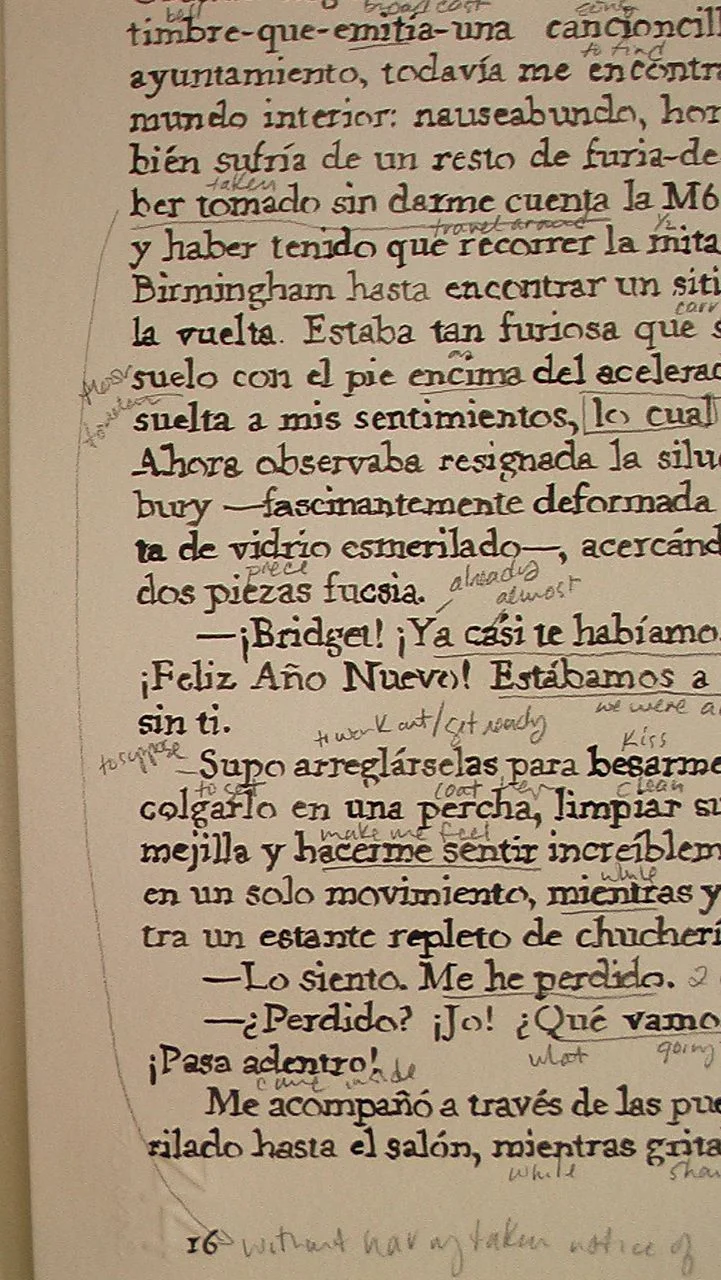 bell broadcast song
timbre-que-emitía-una cancioncill
to find
ayuntamiento, todavía me encontr
mundo interior: nauseabundo, hor
bién sufría de un resto de furia-de
taken
ber tomado sin darme cuenta la M6
travel around 1/2
y haber tenido que recorrer la mita
Birmingham hasta encontrar un siti
la vuelta. Estaba tan furiosa que s
floor
suelo con el pie encima del acelerad
suelta a mis sentimientos, lo cual
Ahora observaba resignada la silu
bury —fascinantemente deformada
ta de vidrio esmerilado—, acercánd
piece already
dos piezas fucsia. almost
—¡Bridget! ¡Ya casi te habíamo
¡Feliz Año Nuevo! Estábamos a
we were a
sin ti.
to work out/get ready kiss
to suppose
Supo arreglárselas para besarme
coat clean
colgarlo en una percha, limpiar su
make me feel
mejilla y hacerme sentir increíblem
while
en un solo movimiento, mientras y
tra un estante repleto de chucherí
—Lo siento. Me he perdido. 2
—¿Perdido? ¡Jo! ¿Qué vamo
what going
¡Pasa adentro!
come inside
Me acompañó a través de las pue
rilado hasta el salón, mientras grita
while
16 without having taken notice of